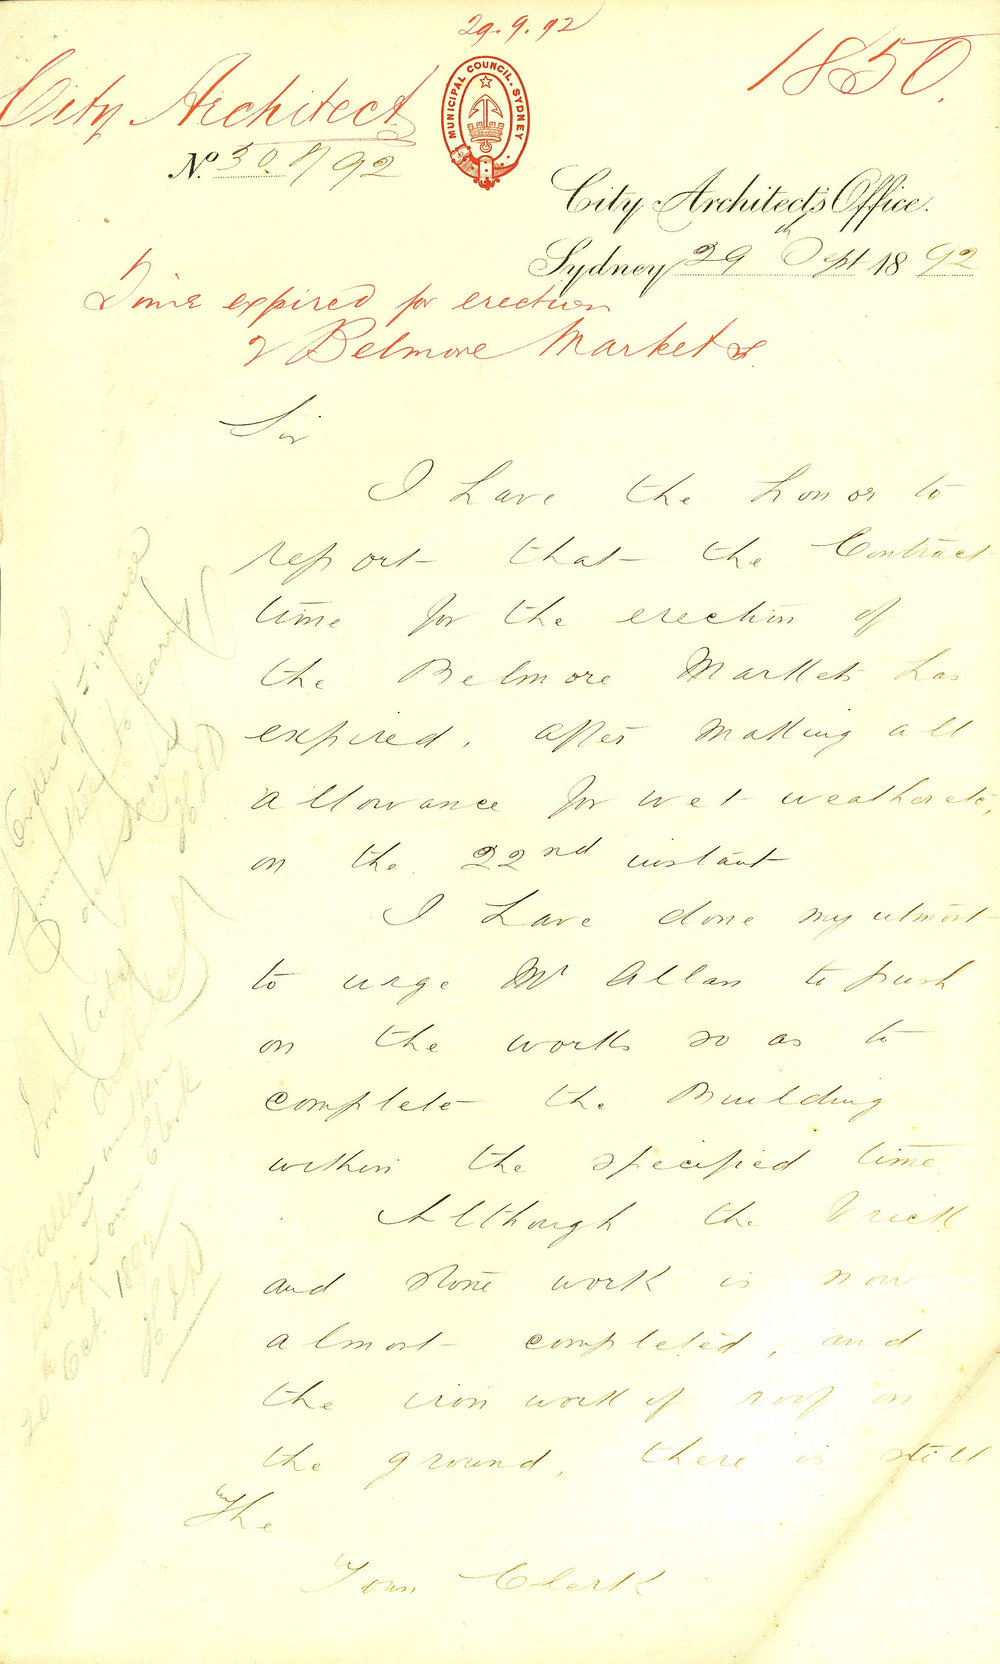 29.9.92
1850.
City Architect
MUNICIPAL COUNCIL. SYDNEY
No. 308/92
City Architect's Office.
Sydney 29th Sept 1892
Time expired for erection
of Belmore Markets.
Sir
I have the honor to
report that the Contract
time for the erection of
the Belmore Markets has
expired, after making all
allowance for wet weather etc,
on the 22nd instant
I have done my utmost
to urge Mr Allan to push
on the works so as to
complete the Building
within the specified time
Although the brick
and stone work is now
almost completed, and
the iron work of roof on
the ground, there is still
The
Town Clerk
Order of Finance
Committee
City
Town Clerk
20 Oct. 1892